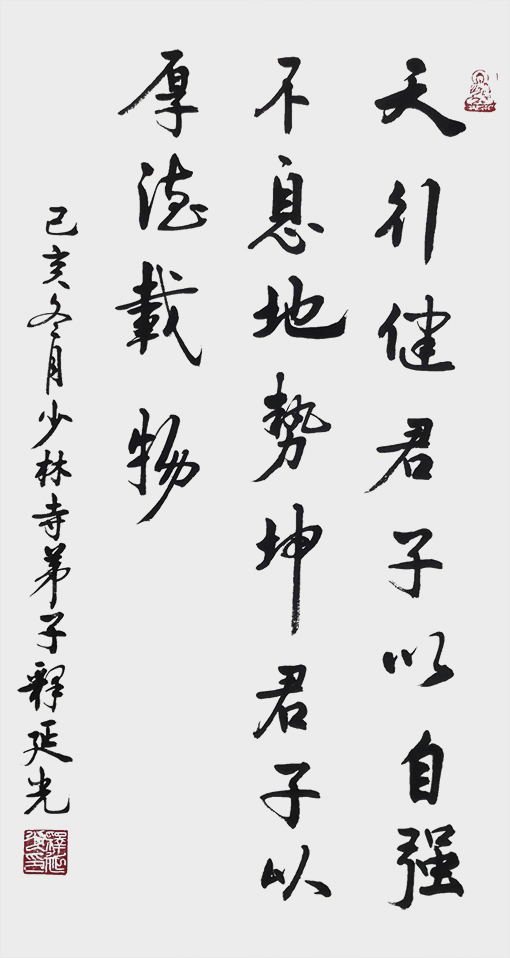 天行健君子以自强
不息地勢坤君子以
厚德載物
己亥冬月少林寺弟子釋延光